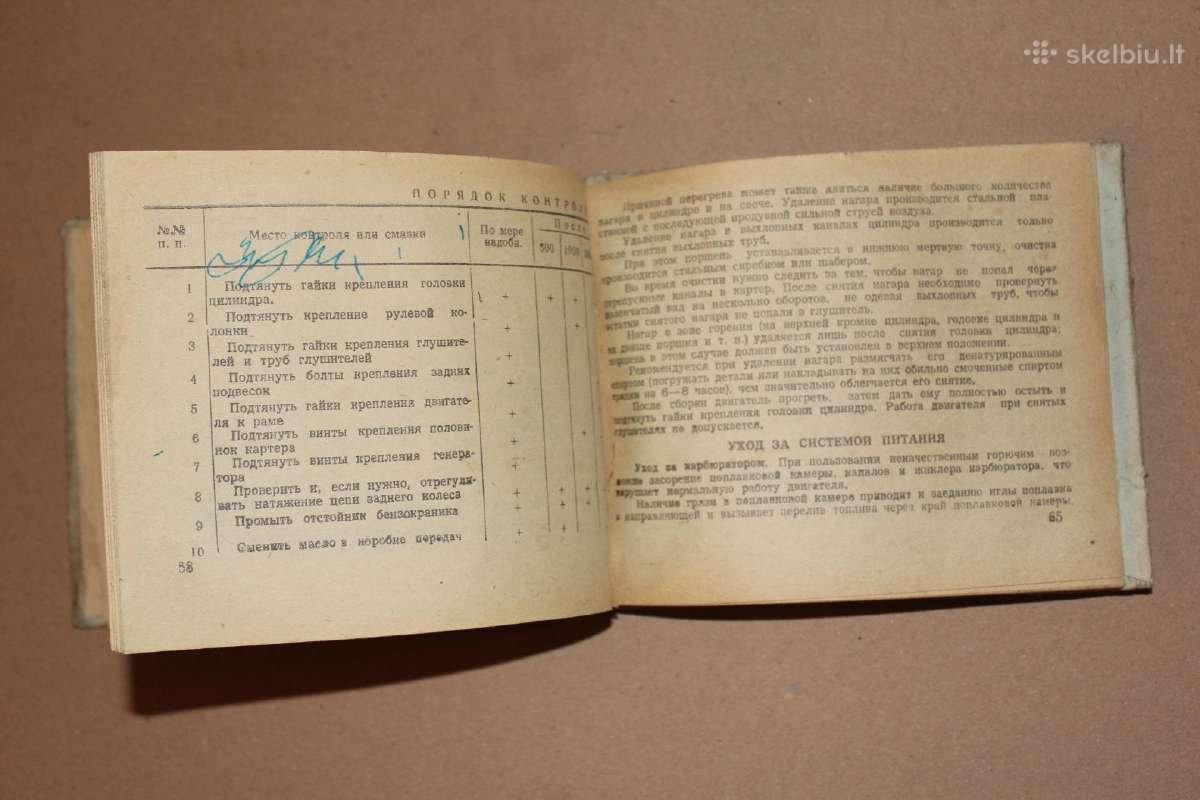 skelbiu.lt
ПОРЯДОК КОНТРОЛ
№№ п. п.
Место контроля или смазки
По мере надобн.
После
500 1000
1 Подтянуть гайки крепления головки
цилиндра. + + +
2 Подтянуть крепление рулевой ко-
лонки + +
3 Подтянуть гайки крепления глушите-
лей и труб глушителей +
4 Подтянуть болты крепления задних
подвесок +
5 Подтянуть гайки крепления двигате-
ля к раме +
6 Подтянуть винты крепления полови-
нок картера + +
7 Подтянуть винты крепления генера-
тора +
8 Проверить и, если нужно, отрегули-
вать натяжение цепи заднего колеса + + +
9 Промыть отстойник бензокраника + +
10 Сменить масло в коробке передач +
58
Причиной перегрева может также явиться наличие большого количества
нагара в цилиндре и на свече. Удаление нагара производится стальной пла-
стинкой с последующей продувкой сильной струей воздуха.
Удаление нагара в выхлопных каналах цилиндра производится только
после снятия выхлопных труб.
При этом поршень устанавливается в нижнюю мертвую точку, очистка
производится стальным скребком или шабером.
Во время очистки нужно следить за тем, чтобы нагар не попал через
перепускные каналы в картер. После снятия нагара необходимо провернуть
коленчатый вал на несколько оборотов, не одевая выхлопных труб, чтобы
остатки снятого нагара не попали в глушитель.
Нагар в зоне горения (на верхней кромке цилиндра, головке цилиндра и
на днище поршня и т. п.) удаляется лишь после снятия головки цилиндра;
поршень в этом случае должен быть установлен в верхнем положении.
Рекомендуется при удалении нагара размягчать его денатурированным
спиртом (погружать детали или накладывать на них обильно смоченные спиртом
тряпки на 6—8 часов), чем значительно облегчается его снятие.
После сборки двигатель прогреть, затем дать ему полностью остыть и
подтянуть гайки крепления головки цилиндра. Работа двигателя при снятых
глушителях не допускается.
УХОД ЗА СИСТЕМОЙ ПИТАНИЯ
Уход за карбюратором. При пользовании некачественным горючим воз-
можно засорение поплавковой камеры, каналов и жиклера карбюратора, что
нарушает нормальную работу двигателя.
Наличие грязи в поплавковой камере приводит к заеданию иглы поплавка
в направляющей и вызывает перелив топлива через край поплавковой камеры,
65